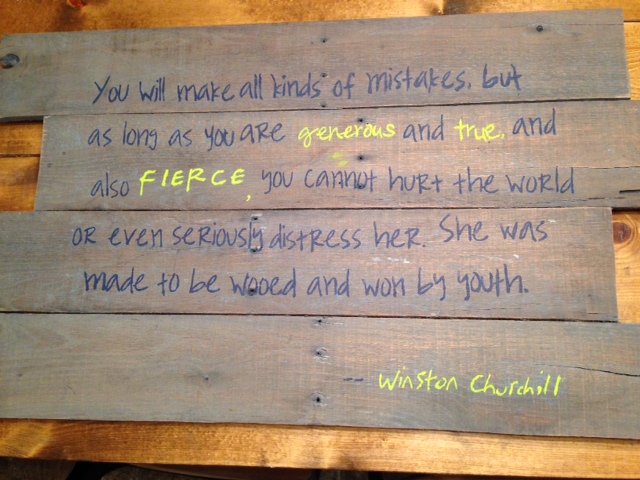 You will make all kinds of mistakes, but
as long as you are generous and true, and
also FIERCE, you cannot hurt the world
or even seriously distress her. She was
made to be wooed and won by youth.
-- Winston Churchill